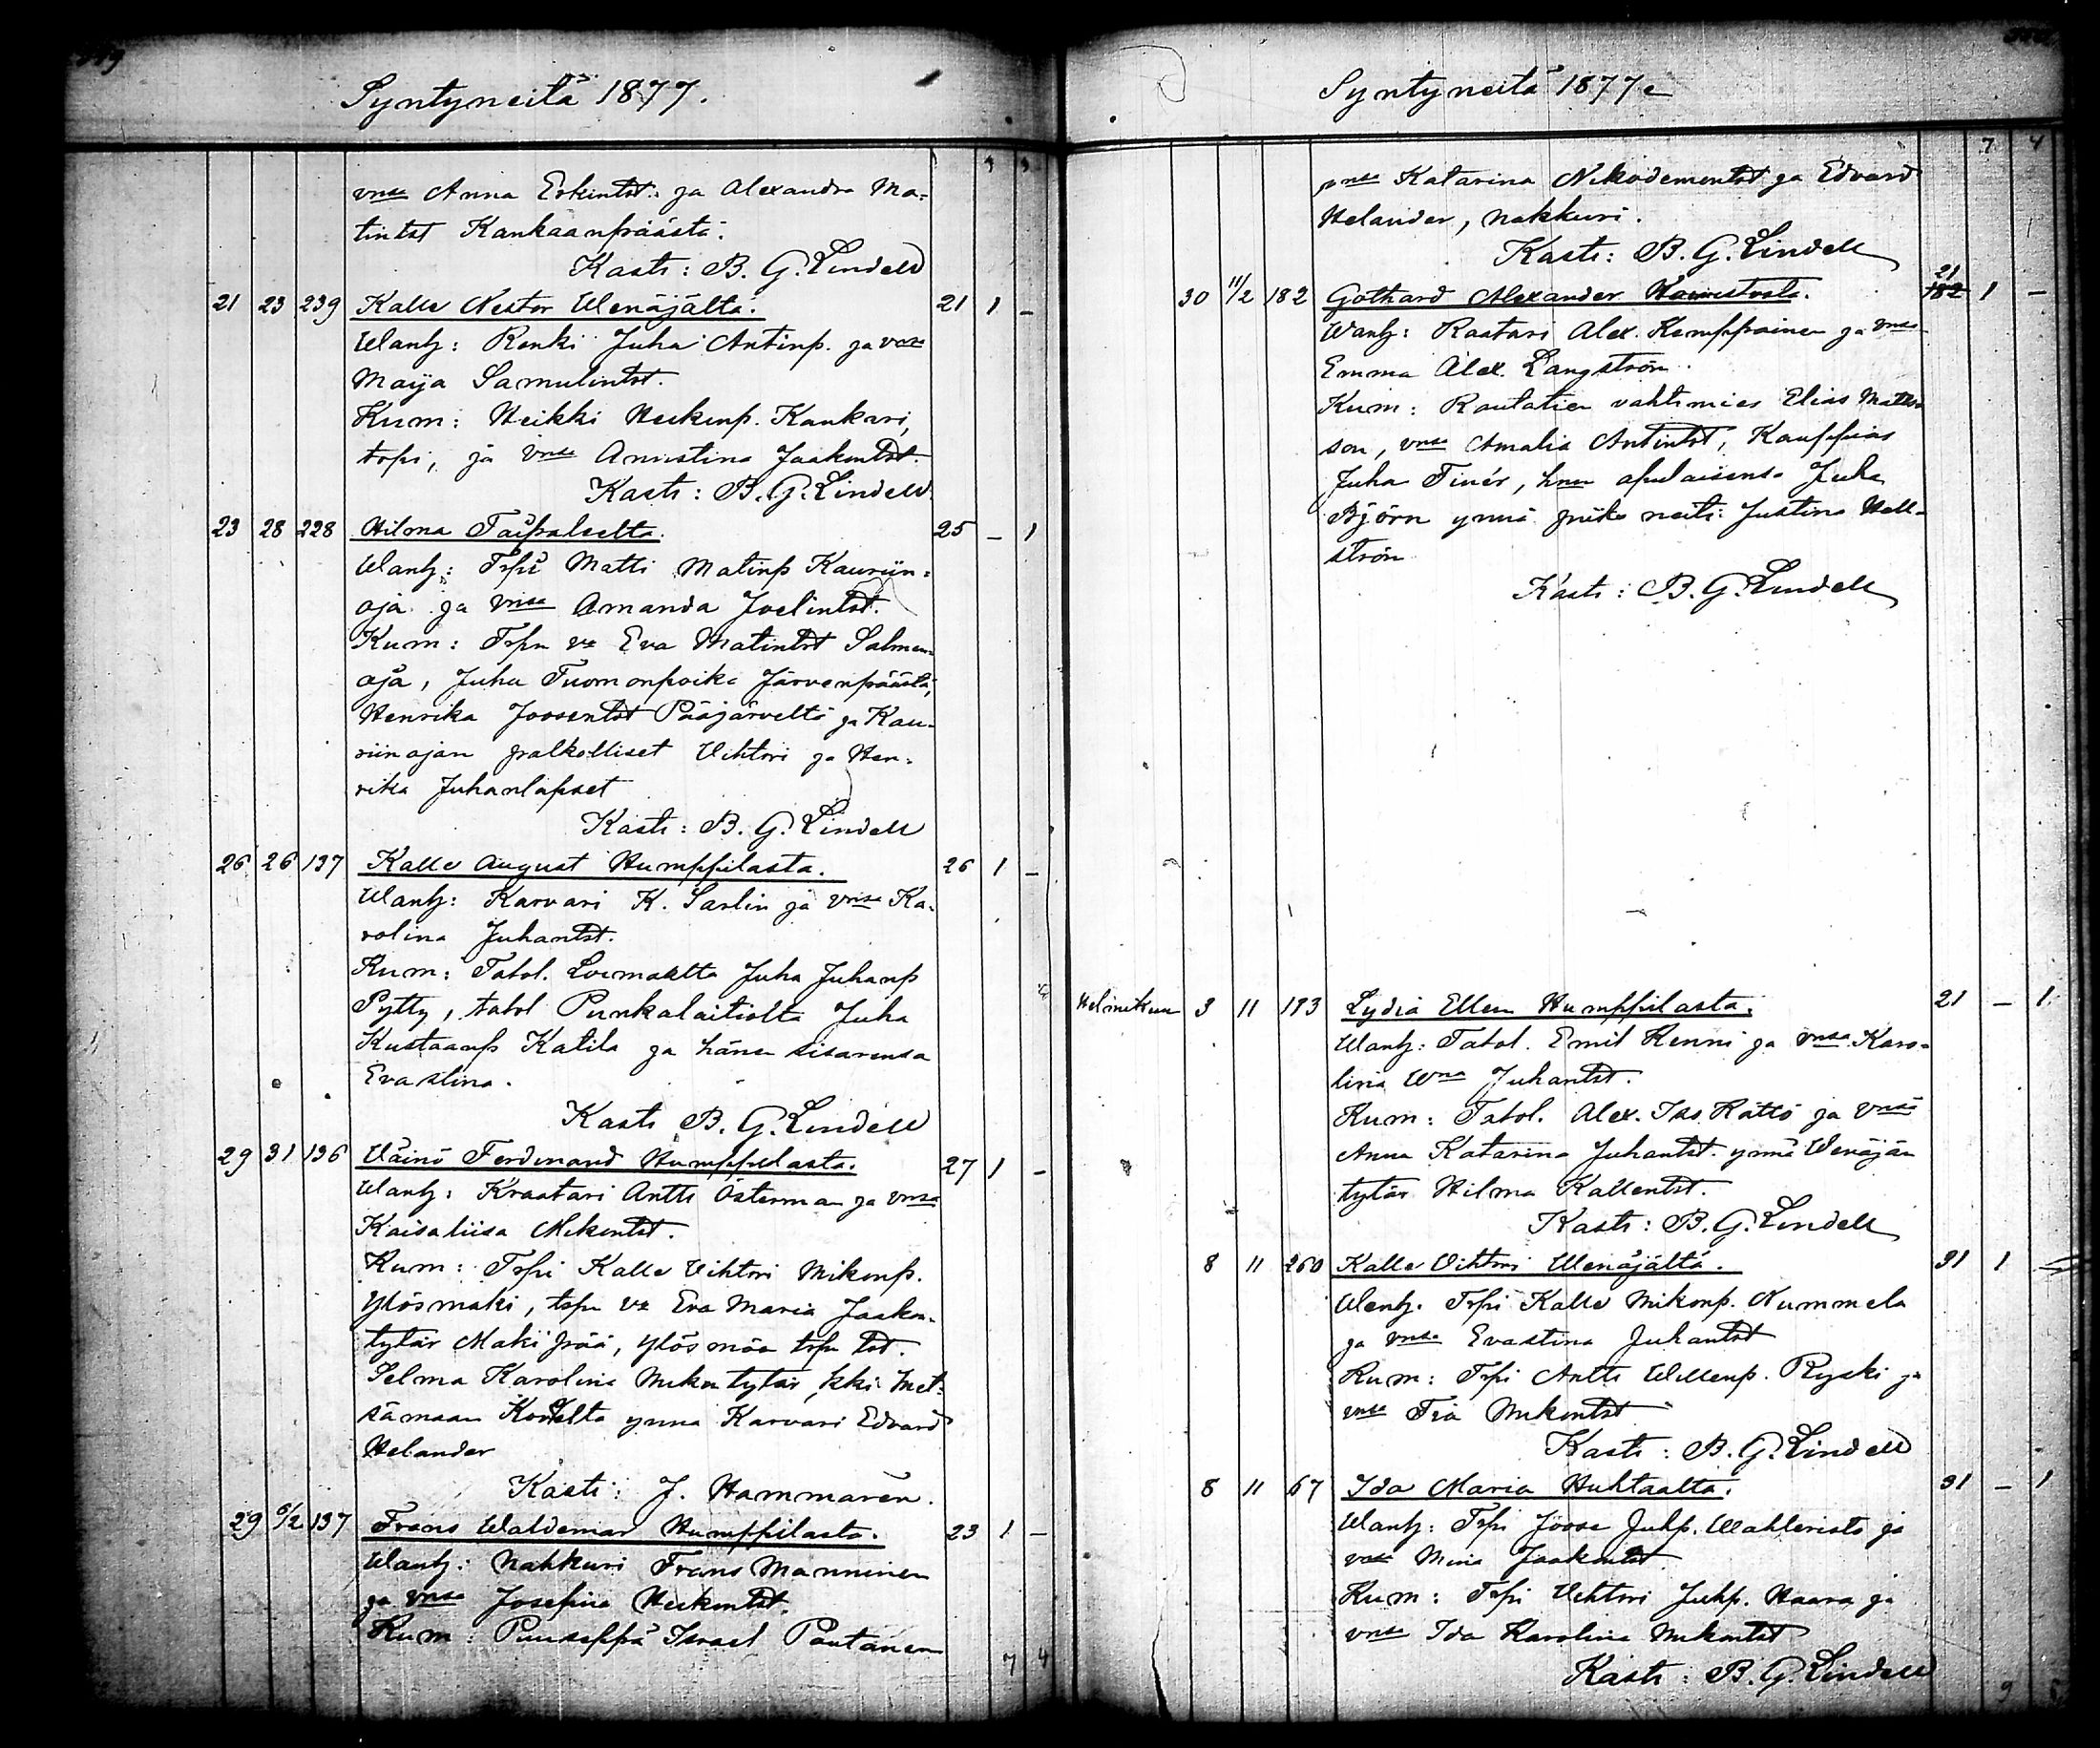 Syntyneitä 1877.
vnsa Anna Erkintst: ja Alexandra Ma-
tintst Kankaanpäästä.
Kasti: B. G. Lindell
21 23 239 Kalle Nestor Wenäjältä. 21 1 –
Wanh: Renki Juha Antinp. ja vnsa
Maija Samulintst.
Kum: Heikki Heikinp. Kankari,
topi, ja vnsa Annastina Jaakontst.
Kasti: B. G. Lindell
23 28 228 Hilma Taipaleelta. 25 – 1
Wanh: Trpi Matti Matinp Kauriin-
oja ja vnsa Amanda Joelintst.
Kum: Trpn va Eva Matintst Salmen-
oja, Juha Tuomonpoika Järvenpäästä,
Henrika Joosentst Pääjärveltä ja Kau-
riinojan palkolliset Vihtori ja Hen-
rika Juhanlapset
Kasti: B. G. Lindell
26 26 137 Kalle August Humppilasta. 26 1 –
Wanh: Karvari K. Sarlin ja vnsa Ka-
rolina Juhantst.
Kum: Tatol. Loimaalta Juha Juhanp
Pytty, tatol Punkalaitiolta Juha
Kustaanp Katila ja hänen sisarensa
Evastina.
Kasti B. G. Lindell
29 31 136 Väinö Ferdinand Humppilasta. 27 1 –
Wanh: Kraatari Antti Österman ja vnsa
Kaisaliisa Mikontst.
Kum: Trpi Kalle Vihtori Mikonp.
Ylösmäki, trpn va Eva Maria Jaakon-
tytär Mäkipää, Ylösmäen trpn tst.
Selma Karolina Mikontytär, kki Met-
sämaan ynnä Karvari Edvard
Helander
Kasti: J. Hammarén.
29 6/2 137 Frans Waldemar Humppilasta. 23 1 –
Wanh: Nahkuri Frans Manninen
ja vnsa Josefina Heikintst.
Kum: Puuseppä Israel Pautanen
7 4
Syntyneitä 1877
7 4
vnsa Katarina Nikodemontst ja Edvard
Helander, nahkuri.
Kasti: B. G. Lindell
21
30 11/2 182 Gothard Alexander 182 1 –
Wanh: Raatari Alex. Kemppainen ja vnsa
Emma Alex. Langström.
Kum: Rautatien vahtimies Elias Matts-
son, vnsa Amalia Antintst, Kauppias
Juha Finér, hnen apulaisensa Juha
Björn ynnä piika neiti Justina Hell-
ström
Kasti: B. G. Lindell
Helmikuu 3 11 193 Lydia Ellen Humppilasta. 21 – 1
Wanh: Tatol. Emil Henni ja vnsa Karo-
lina Wna Juhantst.
Kum: Tatol. Alex. Rättö ja vnsa
Anna Katarina Juhantst. ynnä Wenäjän
tytär Hilma Kallentst.
Kasti: B. G. Lindell
8 11 260 Kalle Vihtori Wenäjältä. 31 1 –
Wanh. Trpi Kalle Mikonp. Nummela
ja vnsa Evastina Juhantst
Kum: Trpi Antti Willenp. Ryski ja
vnsa Fia Mikontst
Kasti: B. G. Lindell
8 11 67 Ida Maria Huhtaalta. 31 – 1
Wanh: Trpi Joose Juhp. Wahlerista ja
vnsa Mina Jaakontst
Kum: Trpi Vihtori Juhp. Haara ja
vnsa Ida Karolina Mikontst
Kasti: B. G. Lindell
9